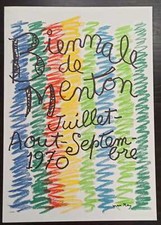 Biennale
de
Menton
Juillet-
Août-Septem-
bre
1970
Man Ray